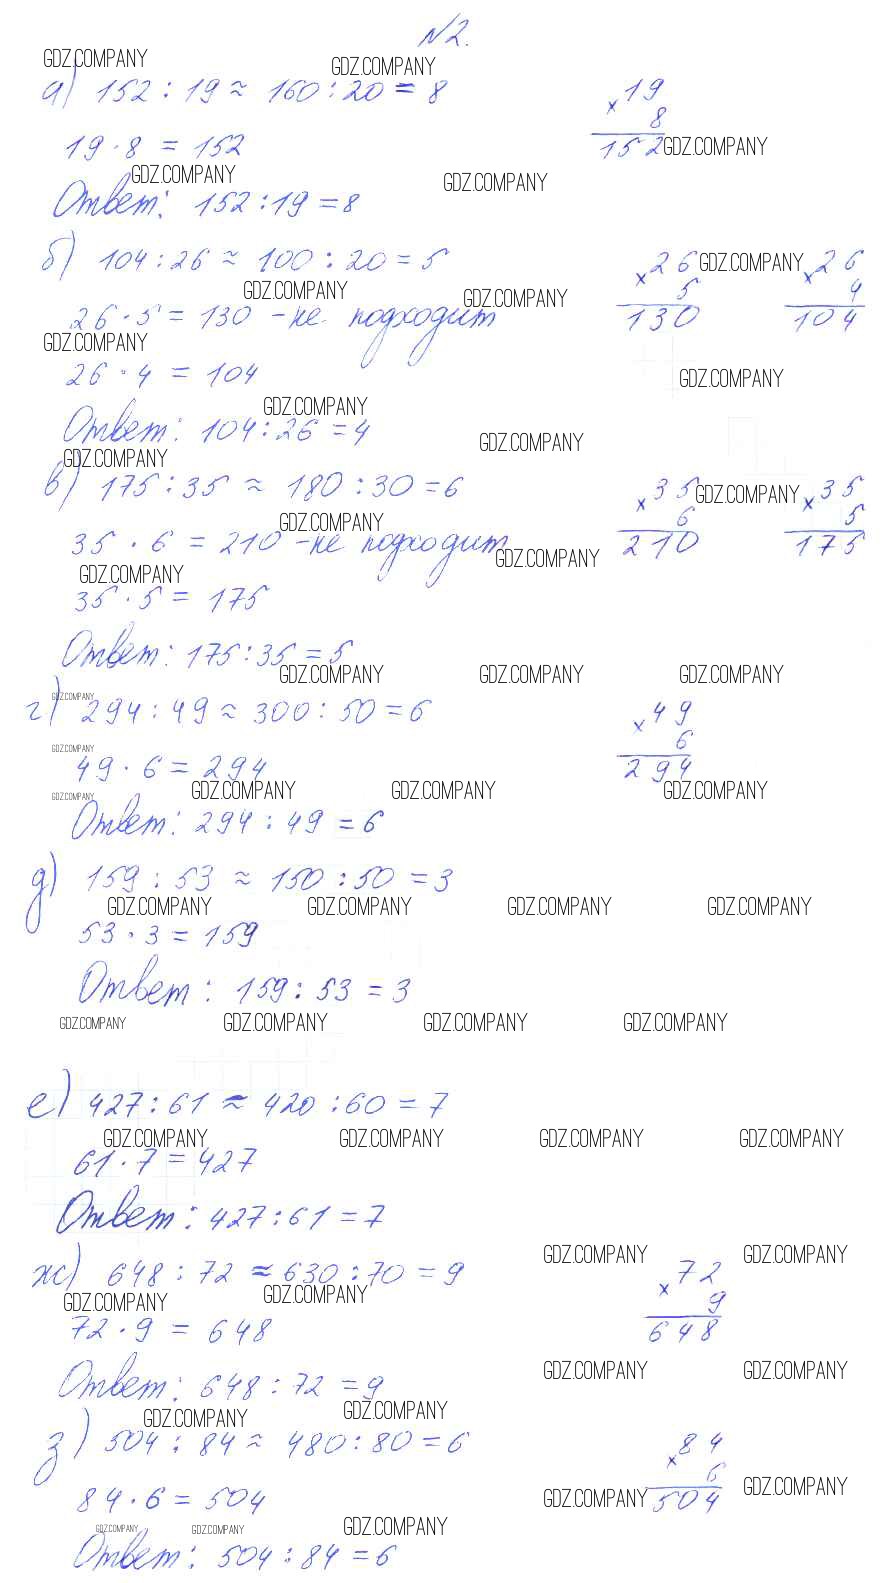 №2.
GDZ.COMPANY GDZ.COMPANY
а) 152 : 19 ≈ 160 : 20 = 8 × 19
8
19 · 8 = 152 152 GDZ.COMPANY
GDZ.COMPANY GDZ.COMPANY
Ответ: 152 : 19 = 8
б) 104 : 26 ≈ 100 : 20 = 5 × 26 GDZ.COMPANY × 26
GDZ.COMPANY GDZ.COMPANY 5 4
26 · 5 = 130 - не подходит 130 104
GDZ.COMPANY
26 · 4 = 104 GDZ.COMPANY
GDZ.COMPANY
Ответ: 104 : 26 = 4 GDZ.COMPANY
GDZ.COMPANY
в) 175 : 35 ≈ 180 : 30 = 6 × 35 GDZ.COMPANY × 35
GDZ.COMPANY 6 5
35 · 6 = 210 - не подходит 210 175
GDZ.COMPANY GDZ.COMPANY
35 · 5 = 175
Ответ: 175 : 35 = 5
GDZ.COMPANY GDZ.COMPANY GDZ.COMPANY
GDZ.COMPANY
г) 294 : 49 ≈ 300 : 50 = 6 × 49
GDZ.COMPANY 6
49 · 6 = 294 294
GDZ.COMPANY GDZ.COMPANY GDZ.COMPANY GDZ.COMPANY
Ответ: 294 : 49 = 6
д) 159 : 53 ≈ 150 : 50 = 3
GDZ.COMPANY GDZ.COMPANY GDZ.COMPANY GDZ.COMPANY
53 · 3 = 159
Ответ: 159 : 53 = 3
GDZ.COMPANY GDZ.COMPANY GDZ.COMPANY GDZ.COMPANY
е) 427 : 61 ≈ 420 : 60 = 7
GDZ.COMPANY GDZ.COMPANY GDZ.COMPANY GDZ.COMPANY
61 · 7 = 427
Ответ: 427 : 61 = 7
GDZ.COMPANY GDZ.COMPANY
ж) 648 : 72 ≈ 630 : 70 = 9 × 72
GDZ.COMPANY GDZ.COMPANY 9
72 · 9 = 648 648
GDZ.COMPANY GDZ.COMPANY
Ответ: 648 : 72 = 9
GDZ.COMPANY GDZ.COMPANY
з) 504 : 84 ≈ 480 : 80 = 6 × 84
6
84 · 6 = 504 GDZ.COMPANY 504 GDZ.COMPANY
GDZ.COMPANY GDZ.COMPANY GDZ.COMPANY
Ответ: 504 : 84 = 6